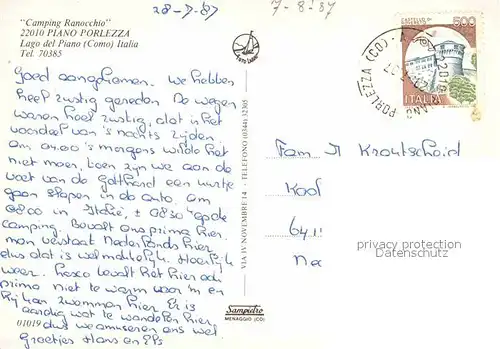 28-7-87
7-8-87
"Camping Ranocchio"
22010 PIANO PORLEZZA
Lago del Piano (Como) Italia
Tel. 70385
Goed aangekomen. We hebben
heel rustig gereden. De wegen
waren heel rustig, dat is het
voordeel van 's nachts rijden.
Om 04.00 's morgens wilde het
niet meer, toen zijn we aan de
voet van de Gotthard een uurtje
gaan slapen in de auto. Om
0800 in Italië, ± 0830 op de
camping. Bevalt ons prima hier.
man verstaat Nederlands hier
dus dat is wel makkelijk. Heerlijk
weer. bevalt het hier ook
prima niet te warm voor 'm en
hij kan zwemmen hier. Er is
aardig wat te wandelen hier
dus we amuseren ons wel
Groetjes Hans en Els
01019
VIA IV NOVEMBRE 14 - TELEFONO (0344) 32305
Sampietro
MENAGGIO (CO)
CASTELLO DI
500
ITALIA
22010
PORLEZZA (CO)
Fam Krautscheid
Kool
6411
Na
privacy protection
Datenschutz